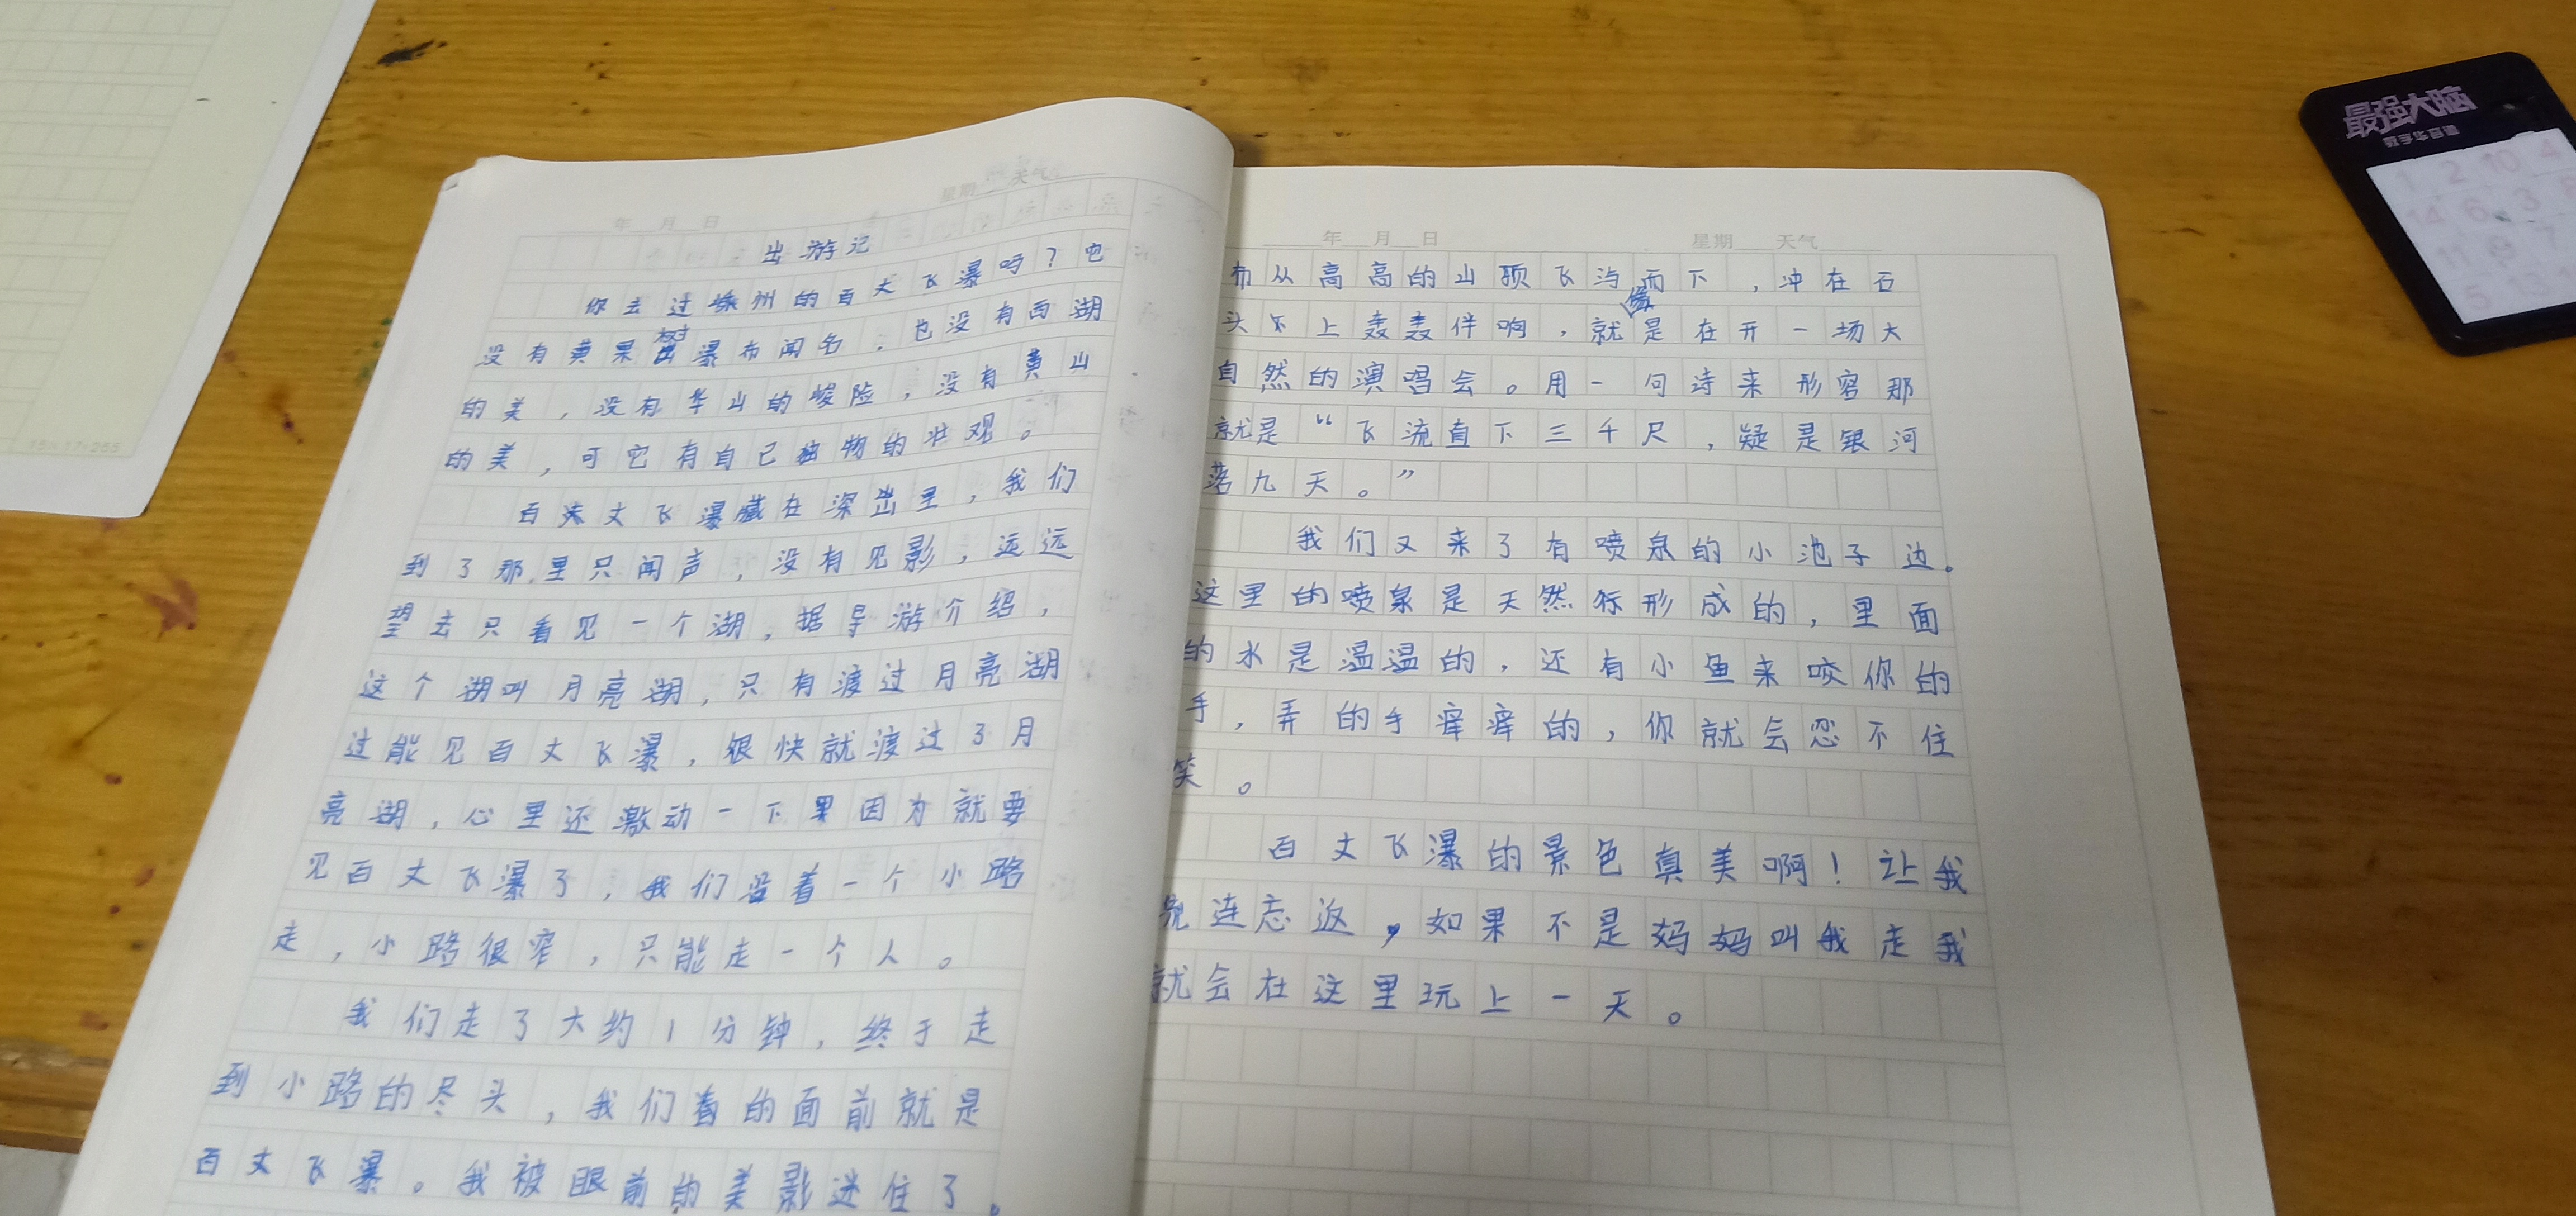 年 月 日
星期 天气
出游记
你去过嵊州的百丈飞瀑吗？它
没有黄果树瀑布闻名，也没有西湖
的美，没有华山的峻险，没有黄山
的美，可它有自己独物的壮观。
百丈飞瀑藏在深出里，我们
到了那里只闻声，没有见影，远远
望去只看见一个湖，据导游介绍，
这个湖叫月亮湖，只有渡过月亮湖
过能见百丈飞瀑，很快就渡过了月
亮湖，心里还激动一下因为就要
见百丈飞瀑了，我们沿着一个小路
走，小路很窄，只能走一个人。
我们走了大约1分钟，终于走
到小路的尽头，我们看的面前就是
百丈飞瀑。我被眼前的美影迷住了。
年 月 日
星期 天气
布从高高的山顶飞 而下，冲在石
头上轰轰伴响，就像是在开一场大
自然的演唱会。用一句诗来形容那
就是“飞流直下三千尺，疑是银河
落九天。”
我们又来了有喷泉的小池子边。
这里的喷泉是天然形成的，里面
的水是温温的，还有小鱼来咬你的
手，弄的手痒痒的，你就会忍不住
笑。
百丈飞瀑的景色真美啊！让我
连忘返，如果不是妈妈叫我走我
就会在这里玩上一天。
最强大脑
数字华容道
1 2 10 4
14 6 3
11 7
5
15×17=255